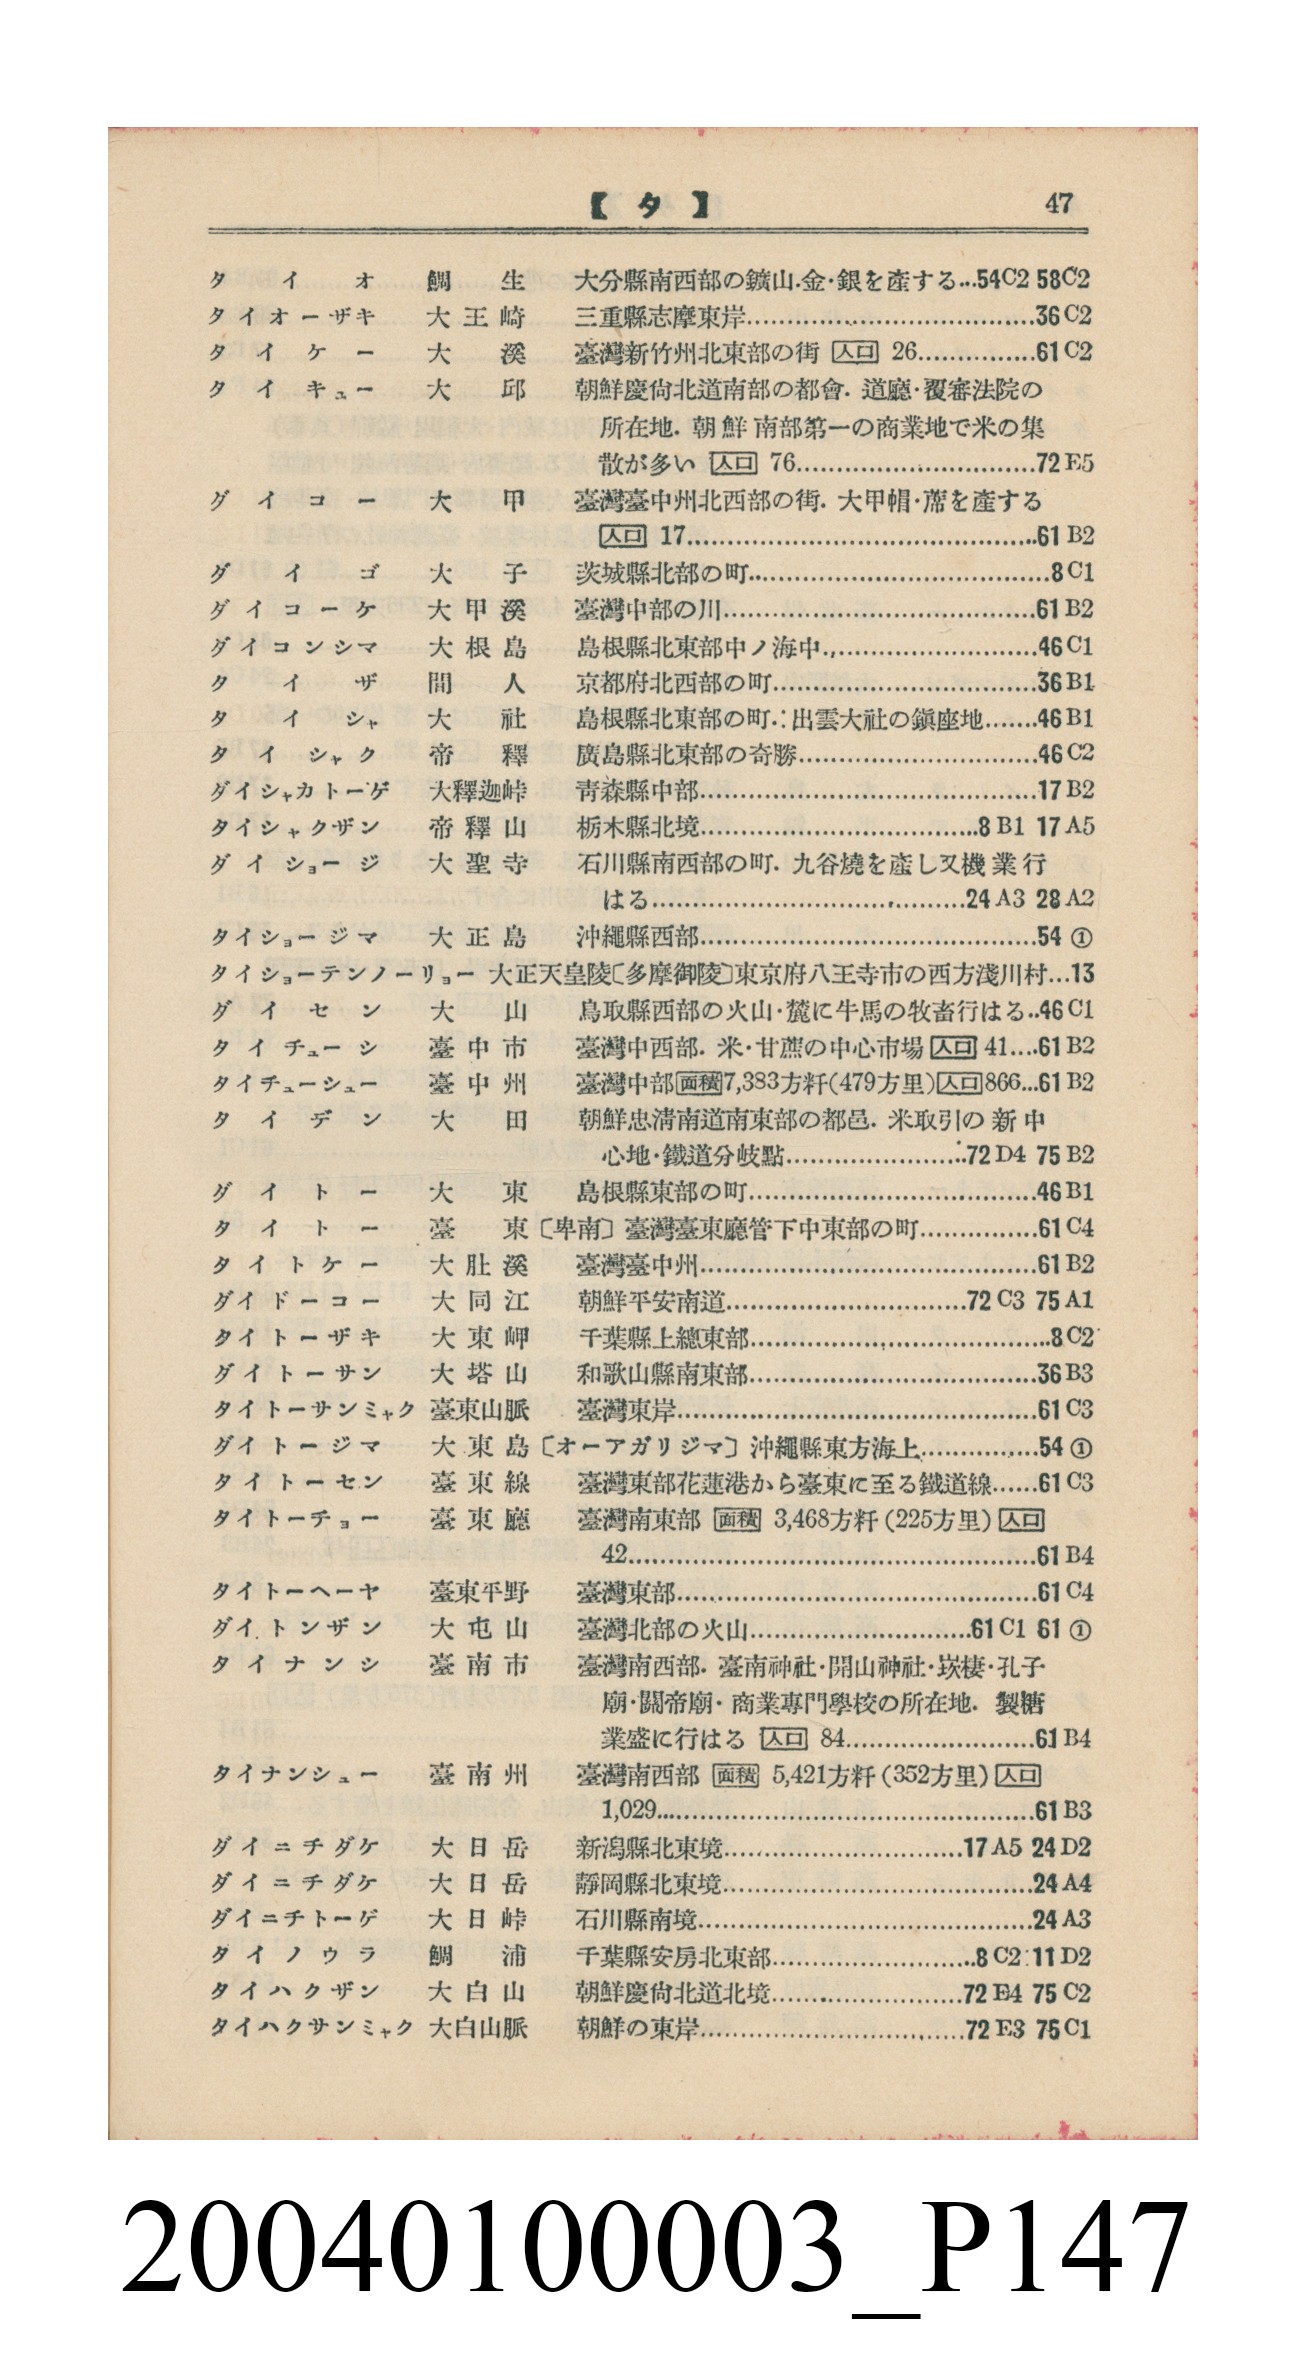 【タ】 47
タイオ 鯛生 大分縣南西部の鑛山.金·銀を產する...54C2 58C2
タイオーザキ 大王崎 三重縣志摩東岸...36C2
タイケー 大溪 臺灣新竹州北東部の街 人口 26...61C2
タイキュー 大邱 朝鮮慶尙北道南部の都會. 道廳·覆審法院の
所在地. 朝鮮南部第一の商業地で米の集
散が多い 人口 76...72E5
ダイコー 大甲 臺灣臺中州北西部の街. 大甲帽·蓆を產する
人口 17...61B2
ダイゴ 大子 茨城縣北部の町...8C1
ダイコーケ 大甲溪 臺灣中部の川...61B2
ダイコンシマ 大根島 島根縣北東部中ノ海中...46C1
タイザ 間人 京都府北西部の町...36B1
タイシャ 大社 島根縣北東部の町. 出雲大社の鎭座地...46B1
タイシャク 帝釋 廣島縣北東部の奇勝...46C2
ダイシャカトーゲ 大釋迦峠 靑森縣中部...17B2
タイシャクザン 帝釋山 栃木縣北境...8B1 17A5
ダイショージ 大聖寺 石川縣南西部の町. 九谷燒を產し又機業行
はる...24A3 28A2
タイショージマ 大正島 沖繩縣西部...54①
タイショーテンノーリョー 大正天皇陵〔多摩御陵〕東京府八王寺市の西方淺川村...13
ダイセン 大山 鳥取縣西部の火山·麓に牛馬の牧畜行はる..46C1
タイチューシ 臺中市 臺灣中西部. 米·甘蔗の中心市場 人口 41....61B2
タイチューシュー 臺中州 臺灣中部 面積 7,383方粁(479方里) 人口 866...61B2
タイデン 大田 朝鮮忠淸南道南東部の都邑. 米取引の新中
心地·鐵道分岐點...72D4 75B2
ダイトー 大東 島根縣東部の町...46B1
タイトー 臺東〔卑南〕 臺灣臺東廳管下中東部の町...61C4
タイトケー 大肚溪 臺灣臺中州...61B2
ダイドーコー 大同江 朝鮮平安南道...72C3 75A1
タイトーザキ 大東岬 千葉縣上總東部...8C2
ダイトーサン 大塔山 和歌山縣南東部...36B3
タイトーサンミャク 臺東山脈 臺灣東岸...61C3
ダイトージマ 大東島〔オーアガリジマ〕 沖繩縣東方海上...54①
タイトーセン 臺東線 臺灣東部花蓮港から臺東に至る鐵道線...61C3
タイトーチョー 臺東廳 臺灣南東部 面積 3,468方粁(225方里) 人口
42...61B4
タイトーヘーヤ 臺東平野 臺灣東部...61C4
ダイトンザン 大屯山 臺灣北部の火山...61C1 61①
タイナンシ 臺南市 臺灣南西部. 臺南神社·開山神社·崁棲·孔子
廟·關帝廟·商業專門學校の所在地. 製糖
業盛に行はる 人口 84...61B4
タイナンシュー 臺南州 臺灣南西部 面積 5,421方粁(352方里) 人口
1,029...61B3
ダイニチダケ 大日岳 新潟縣北東境...17A5 24D2
ダイニチダケ 大日岳 靜岡縣北東境...24A4
ダイニチトーゲ 大日峠 石川縣南境...24A3
タイノウラ 鯛浦 千葉縣安房北東部...8C2 11D2
タイハクザン 大白山 朝鮮慶尙北道北境...72E4 75C2
タイハクサンミャク 大白山脈 朝鮮の東岸...72E3 75C1
20040100003_P147